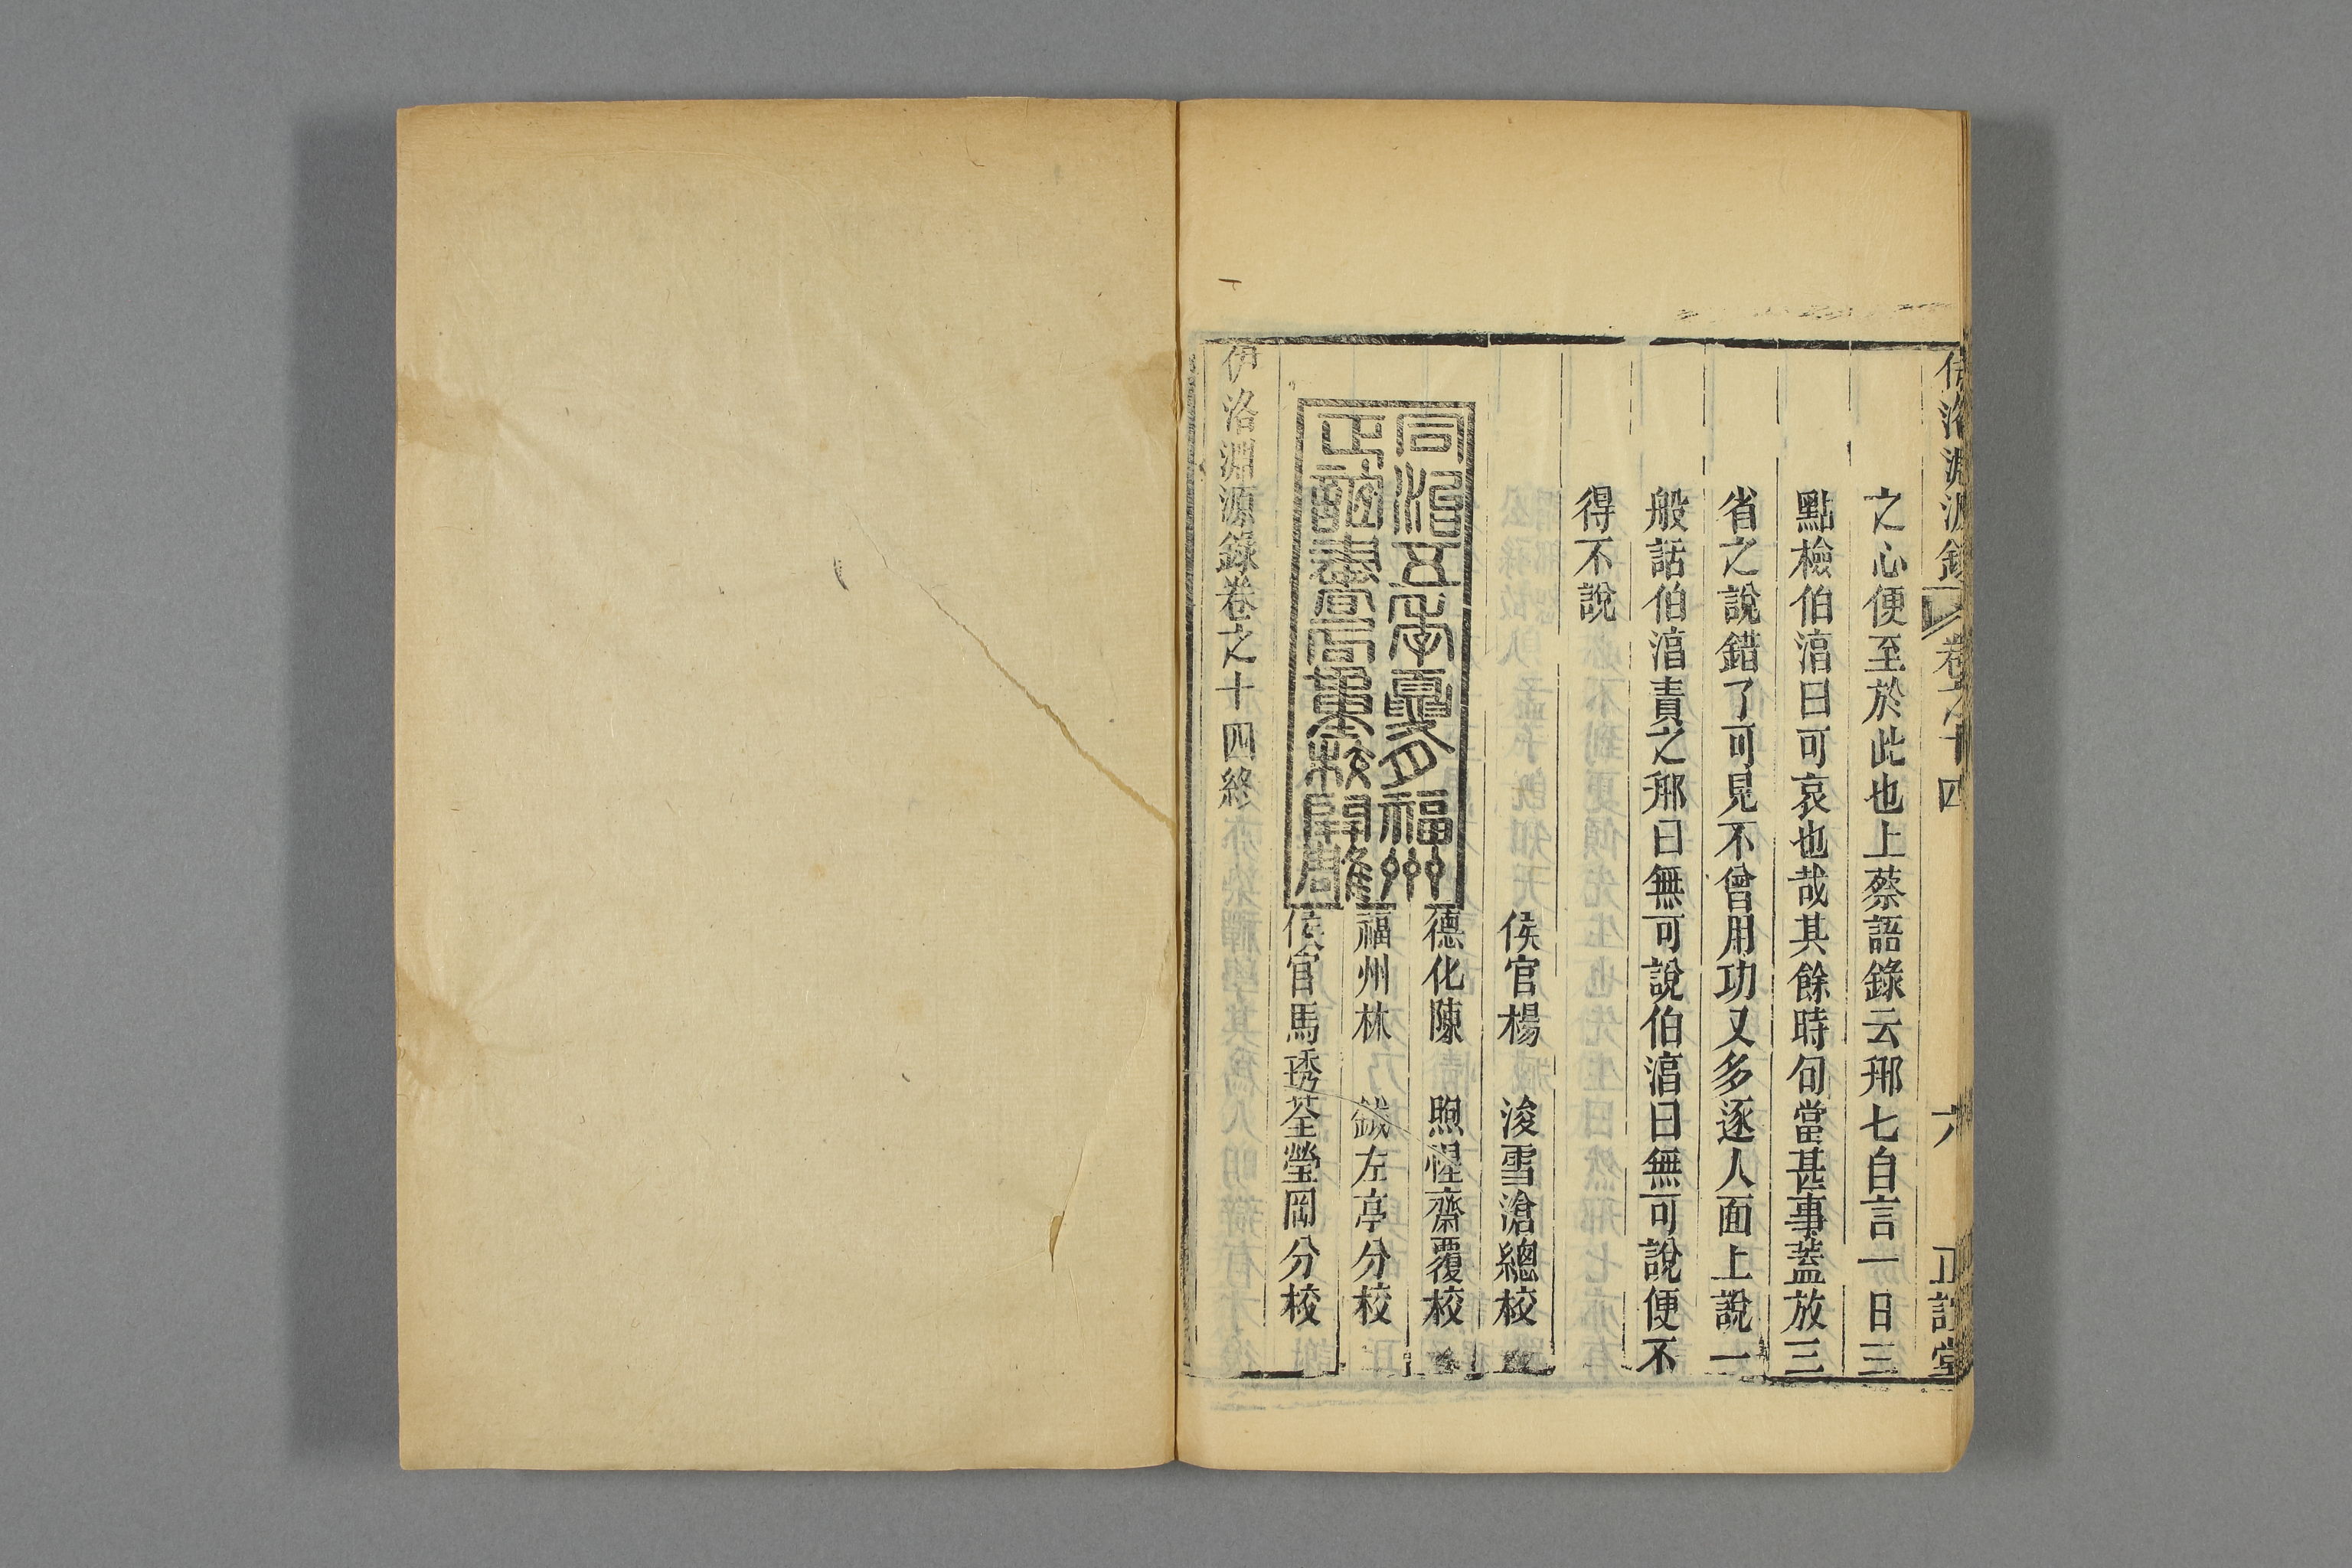 伊洛淵源錄 卷之十四 六 正誼堂
之心便至於此也上蔡語錄云邢七自言一日三
點檢伯淳曰可哀也哉其餘時句當甚事蓋放三
省之說錯了可見不曾用功又多逐人面上說一
般話伯淳責之邢曰無可說伯淳曰無可說便不
得不說
侯官楊浚雪滄總校
德化陳煦惺齋覆校
福州林鉞左亭分校
侯官馬琇荃瑩岡分校
同治五年夏月福州
正誼書局重校開雕
伊洛淵源錄卷之十四終